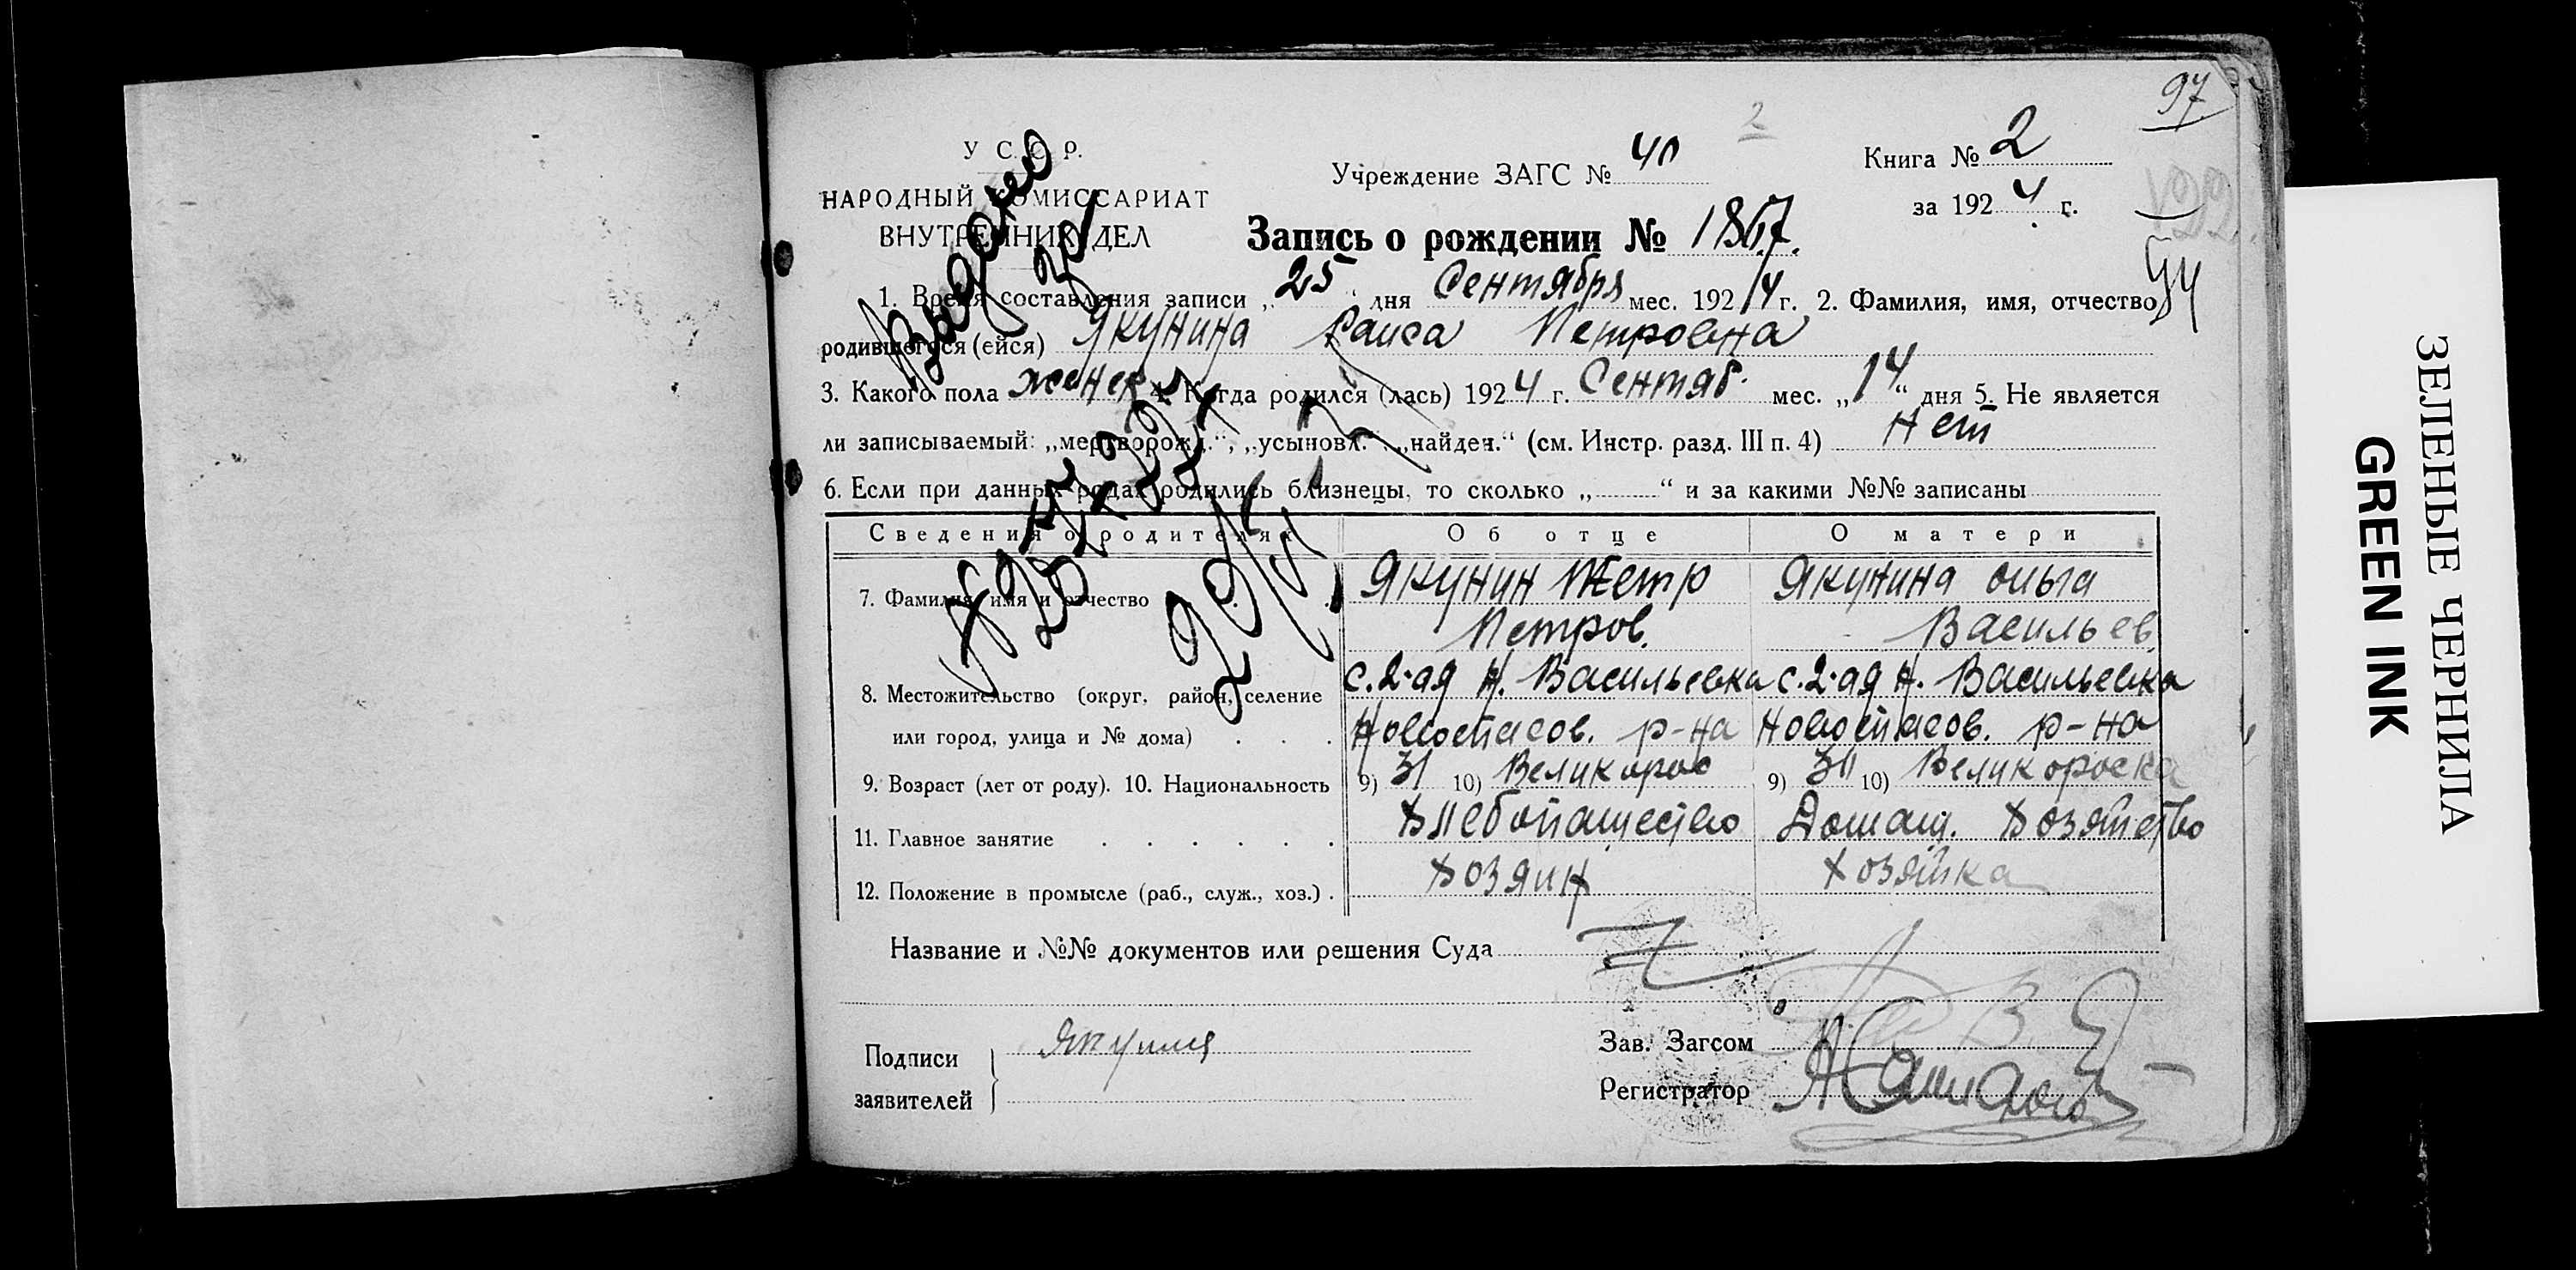 97
2
У С. С. Р.
НАРОДНЫЙ КОМИССАРИАТ
ВНУТРЕННИХ ДЕЛ
Учреждение ЗАГС № 40
Книга № 2
за 1924 г.
Запись о рождении № 1867.
94
1. Время составления записи „25“ дня Сентября мес. 1924 г. 2. Фамилия, имя, отчество
родившегося (ейся) Якунина Раиса Петровна
3. Какого пола женск 4. Когда родился (лась) 1924 г. Сентяб. мес. „14“ дня 5. Не является
ли записываемый: „мертворожд.“, „усыновл.“ „найден.“ (см. Инстр. разд. III п. 4) Нет
6. Если при данных родах родились близнецы, то сколько „ “ и за какими №№ записаны
Сведения о родителях Об отце О матери
7. Фамилия, имя и отчество Якунин Петр Якунина Ольга
Петров. Васильев.
8. Местожительство (округ, район, селение с. 2-ая Н. Васильевка с. 2-ая Н. Васильевка
или город, улица и № дома) Новоспасов. р-на Новоспасов. р-на
9. Возраст (лет от роду). 10. Национальность 9) 31 10) Великорос 9) 30 10) Великороска
11. Главное занятие Хлебопашество Домаш. Хозяйство
12. Положение в промысле (раб., служ., хоз.) Хозяин Хозяйка
Название и №№ документов или решения Суда
Подписи
заявителей
Якунин
Зав. Загсом
Регистратор
Выдано
ЗЕЛЕНЫЕ ЧЕРНИЛА
GREEN INK